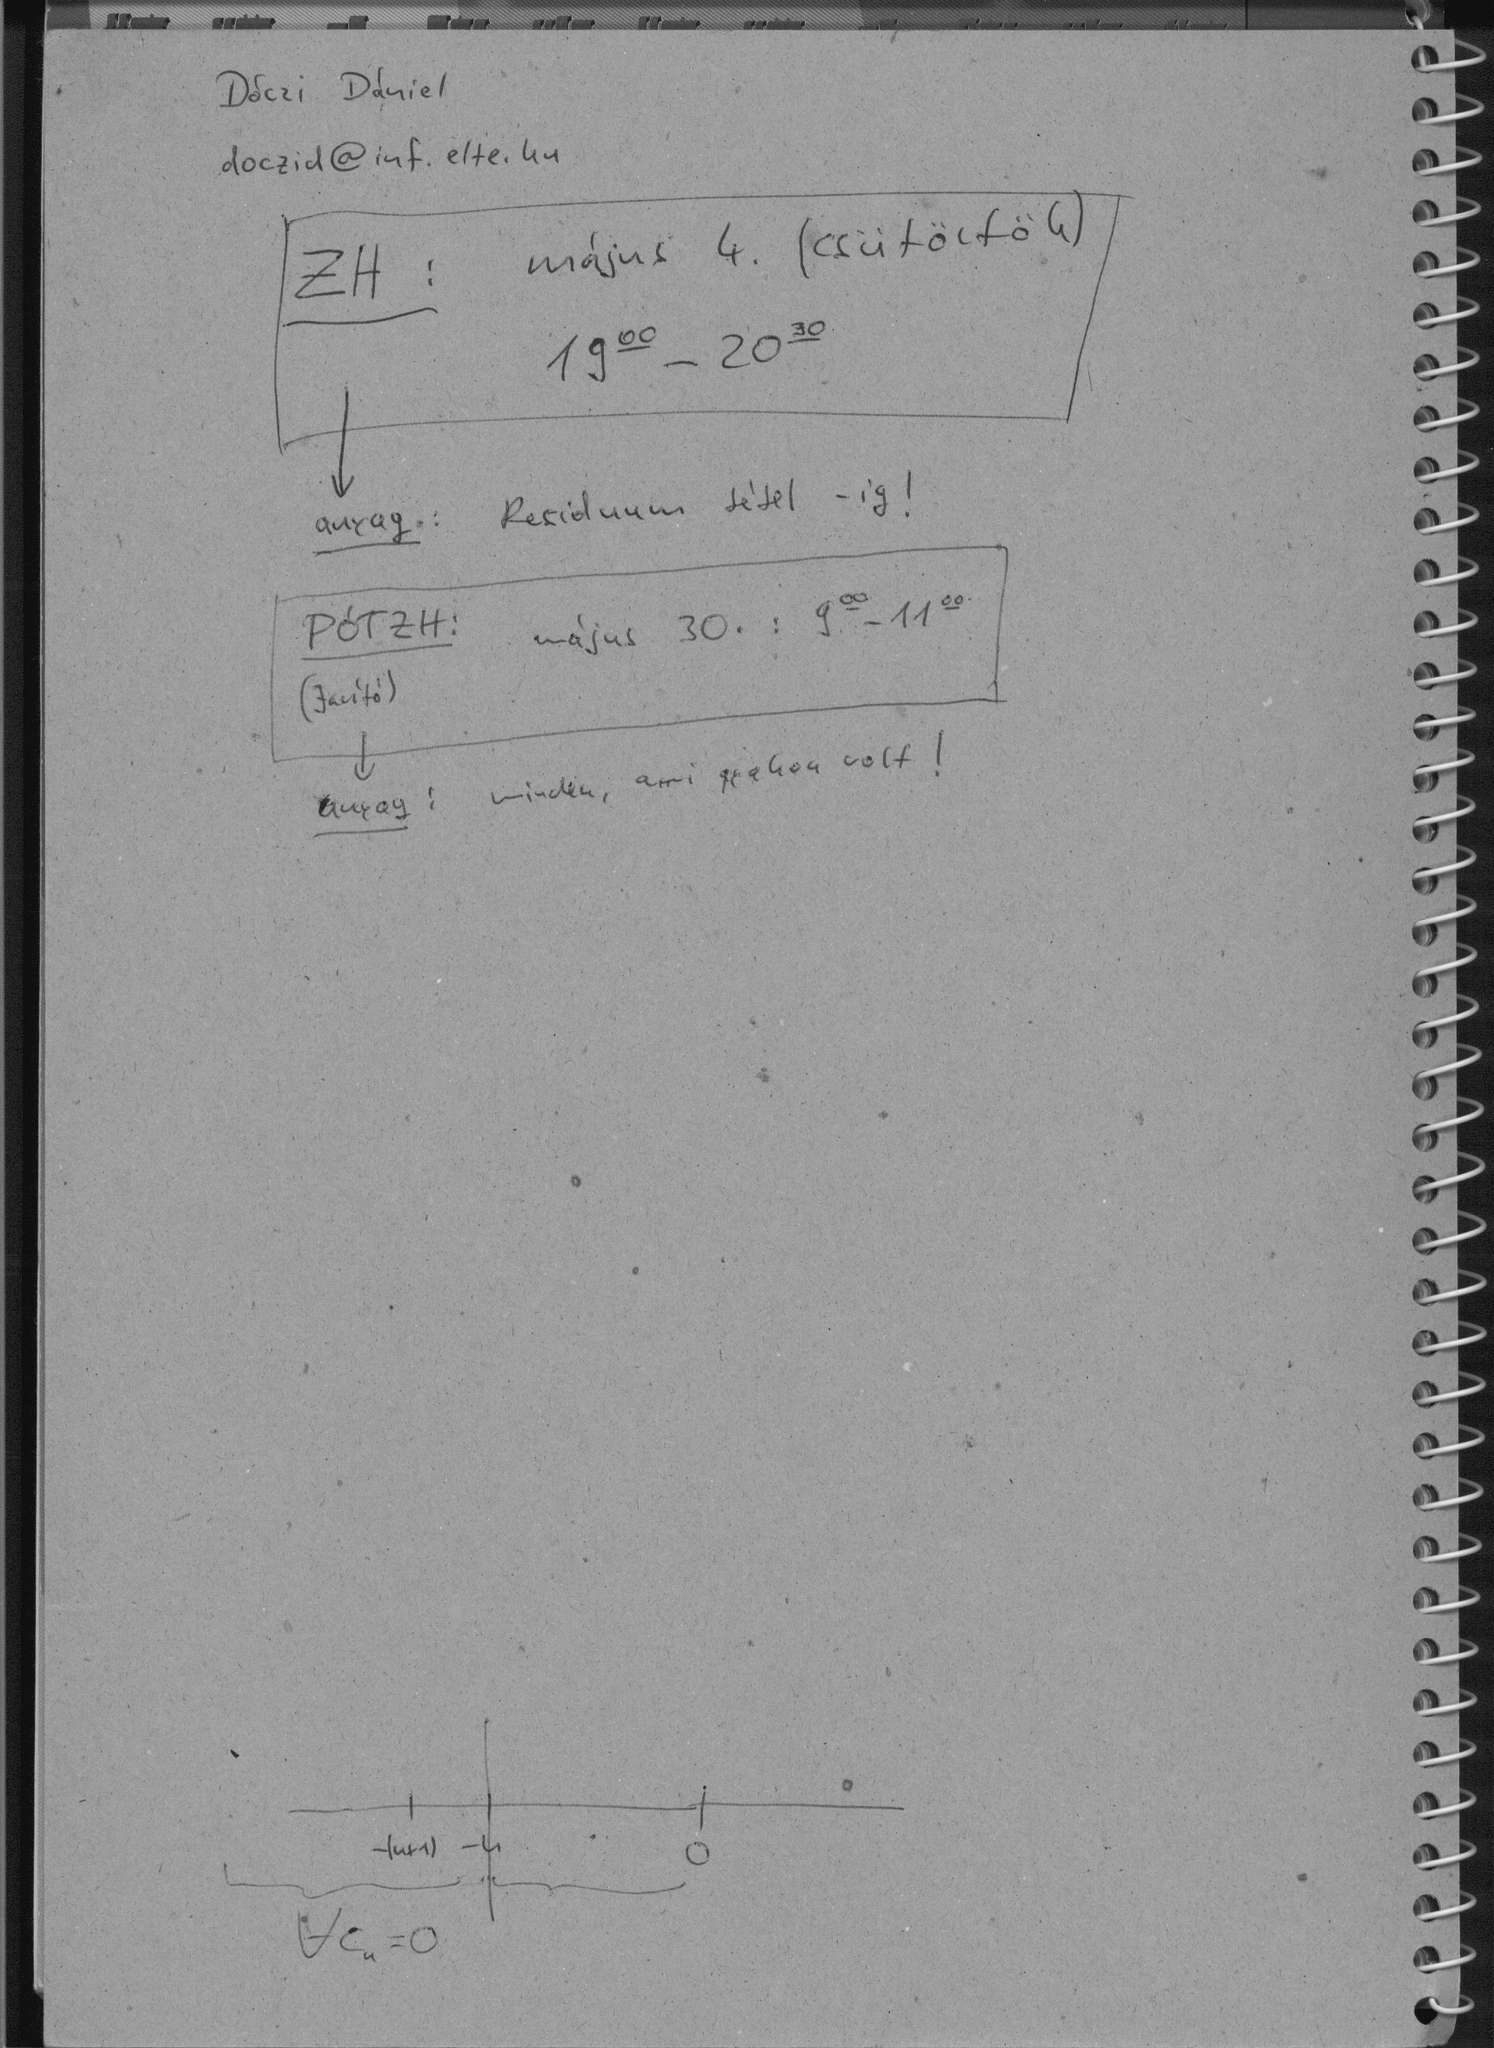 Dóczi Dániel
doczid@inf.elte.hu
ZH: május 4. (csütörtök)
19⁰⁰ - 20³⁰
anyag: Residuum tétel -ig!
PÓTZH: május 30. : 9⁰⁰ - 11⁰⁰
(Javító)
anyag: minden, ami gyakon volt!
-(n+1) -n 0
∀cₙ=0